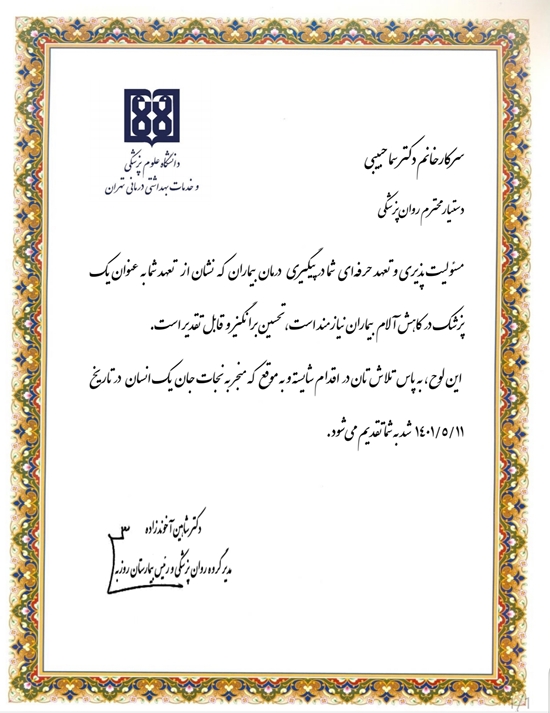 دانشگاه علوم پزشکی
و خدمات بهداشتی درمانی تهران
سرکار خانم دکتر سما حبیبی
دستیار محترم روان‌پزشکی
مسئولیت پذیری و تعهد حرفه‌ای شما در پیگیری درمان بیماران که نشان از تعهد شما به عنوان یک
پزشک در کاهش آلام بیماران نیازمند است، تحسین برانگیز و قابل تقدیر است.
این لوح، به پاس تلاش تان در اقدام شایسته و به موقع که منجر به نجات جان یک انسان در تاریخ
۱۴۰۱/۵/۱۱ شد به شما تقدیم می‌شود.
دکتر شاهین آخوندزاده
مدیر گروه روان پزشکی و رئیس بیمارستان روزبه